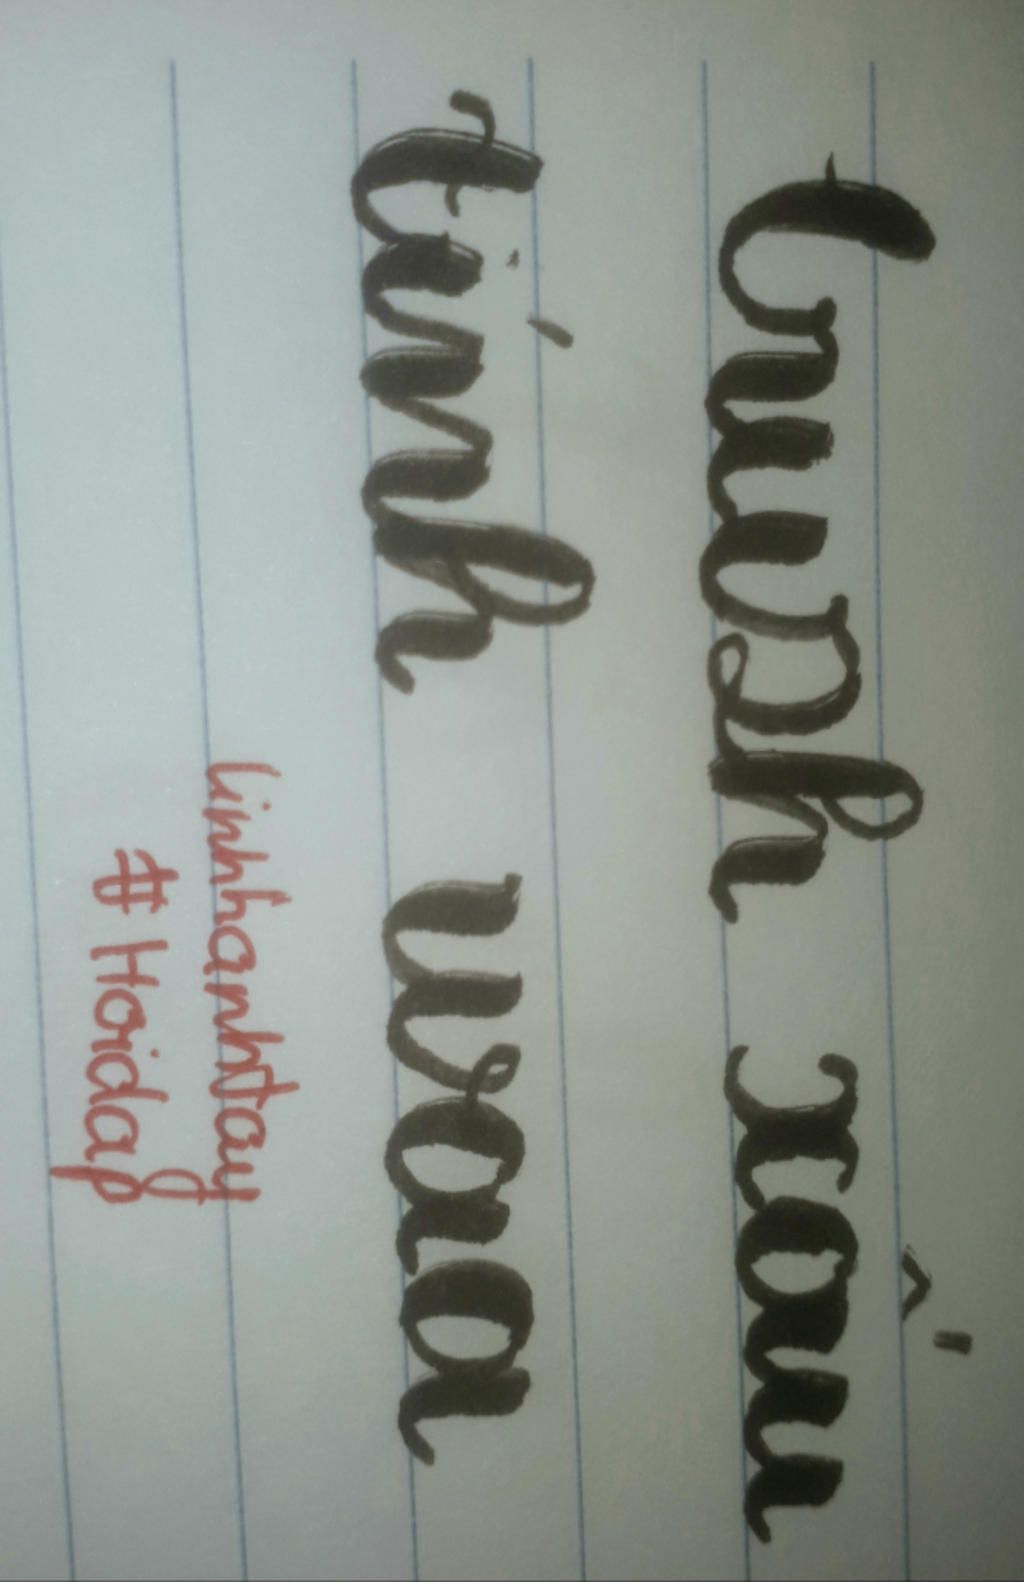 Crush xấu
tính waa
linhhanhtay
#Hoidap